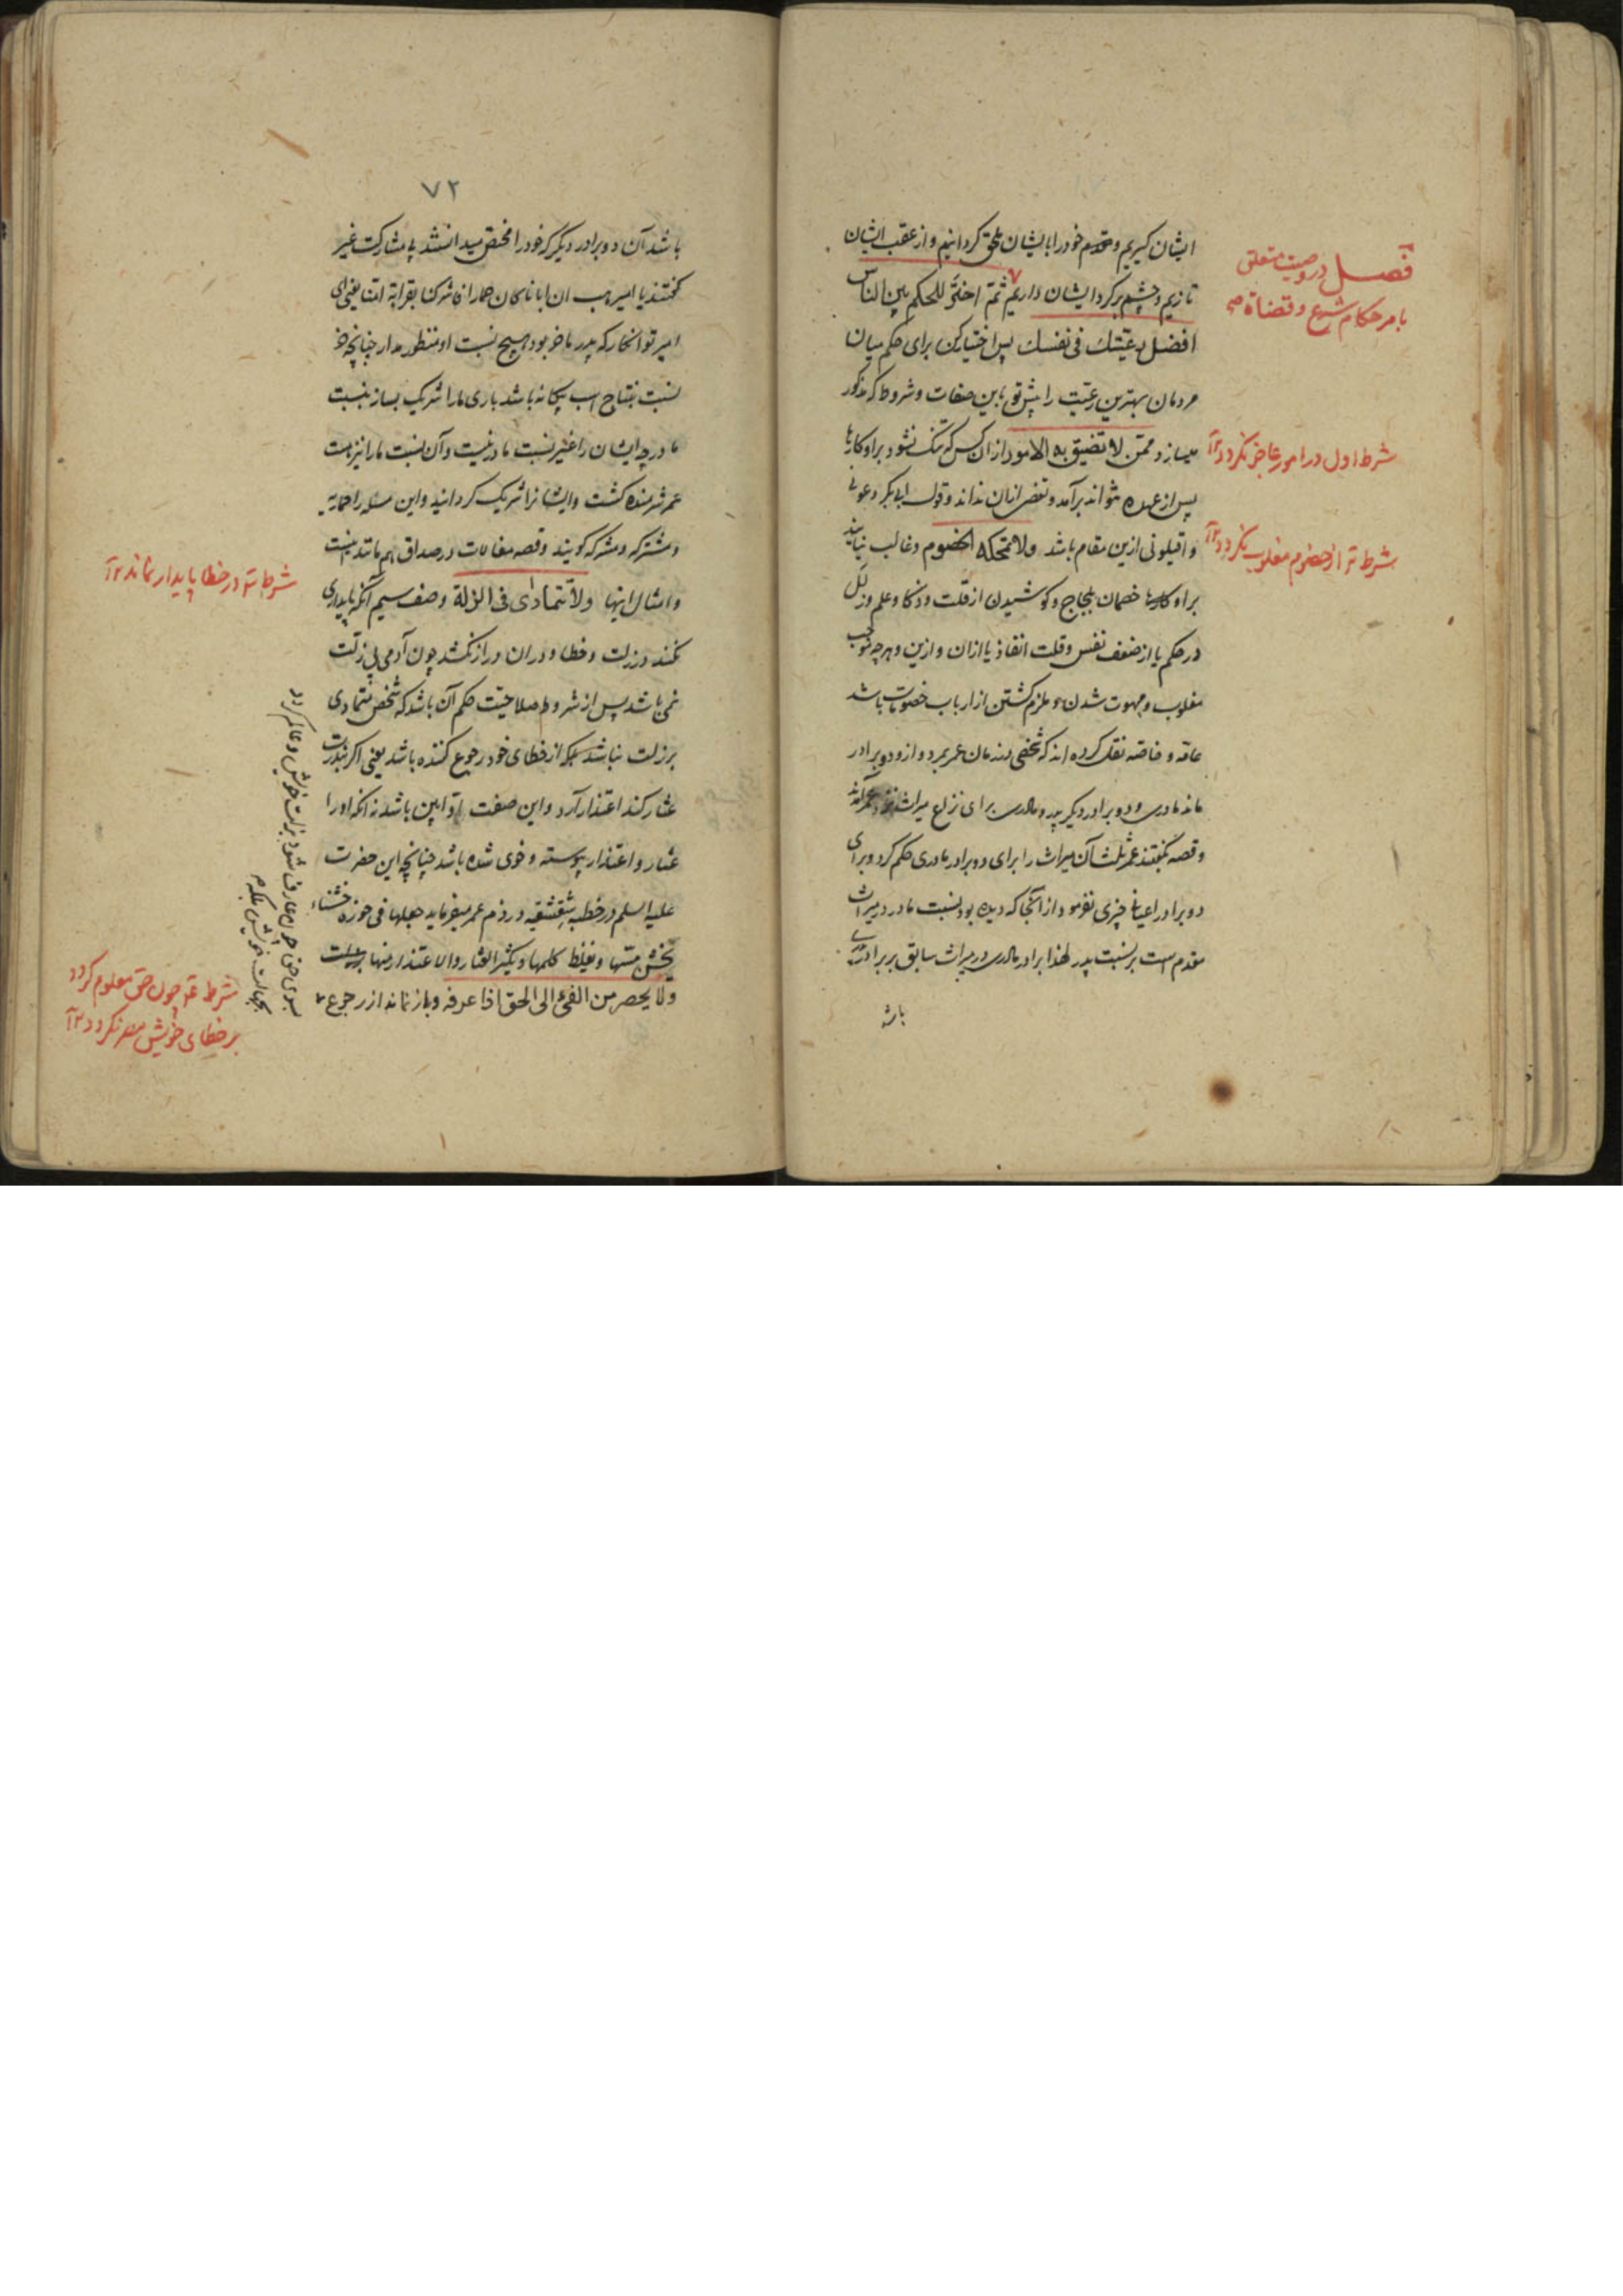 ایشان کیریم و قدم خود را بایشان ملحق کردانیم و از عقب ایشان
تازیم و چشم بر کرد ایشان داریم ثم اختر للحکم بین الناس
افضل رعیتک فی نفسک پس اختیار کن برای حکم میان
مردمان بهترین رعیت را پیش تو باین صفات و شروط که مذکور
میسازد ممن لا تضیق به الامور از ان کس که تنک نشود بر او کارها
پس از عهده نتواند برآمد و تفصی از ان نداند و قول ابی بکر دعونی
و اقیلونی ازین مقام باشد ولا تمحکه الخصوم و غالب نیایند
بر او خصمان بلجاج و کوشیدن از قلت و ذکا و علم و زلل
در حکم یا از ضعف نفس و قلت انفاذ یا از ان و ازین و هر چه موجب
مغلوب و مبهوت شدن و ملزم کشتن از ارباب خصومات باشد
عامه و خاصه نقل کرده اند که شخصی در زمان عمر بمرد و از و دو برادر
ماند مادری و دو برادر دیکر پدر و مادری برای نزاع میراث نزد عمر آمدند
و قصه بگفتند عمر ثلث آن میراث را برای دو برادر مادری حکم کرد و برای
دو برادر اعیانی چیزی نفرمود از آنجا که دیده بود نسبت مادر در میراث
مقدم است بر نسبت پدر لهذا برادر مادری در میراث سابق بر برادر
باشد
فصل در وصیت متعلق
بامر حکام شرع و قضاة
شرط اول در امور عاجز نکردد
شرط از خصوم مغلوب نکردد
۷۲
باشد آن دو برادر دیکر که خود را مختص میدانستند بی مشارکت غیر
کفتند یا امیر هب ان ابانا کان حمارا فاشرکنا بقرابة امنا یعنی ای
امیر تو انکار که پدر ما خر بود هیچ نسبت او منظور مدار چنانچه
نسبت بنتاج اسب بیکانه باشد باری ما را شریک بساز بنسبت
مادر چه ایشان را غیر نسبت مادر نیست و آن نسبت ما را نیز هست
عمر شرمنده کشت و ایشانرا شریک کردانید و این مسئله را حماریه
و مشترکه و مشرکه کویند و قصه مغالات در صداق هم مانند اینست
و امثال اینها ولا یتمادی فی الزلة وصف سیم آنکه پایداری
نکند در زلت و خطا و در ان دراز نکشد چون آدمی بی زلت
نمی باشد پس از شروط صلاحیت حکم آن باشد که شخص متمادی
بر زلت نباشد بلکه از خطای خود رجوع کننده باشد یعنی اکر بندرت
عثار کند اعتذار آرد و این صفت اوابین باشد نه آنکه او را
عثار و اعتذار پیوسته و خوی شده باشد چنانچه این حضرت
علیه السلم در خطبه شقشقیه در ذم عمر میفرماید جعلها فی حوزة خشناء
یخشن مسها و یغلظ کلمها و یکثر العثار والاعتذار منها
ولا یحصر من الفیء الی الحق اذا عرفه و باز نماند از رجوع
شرط در خطا پایدار نماند
بسوی حق چون عارف شود بزلت خویش و عالم کردد
بجهالت خویش
شرط چون حق معلوم کردد
بر خطای خویش مصر نکردد